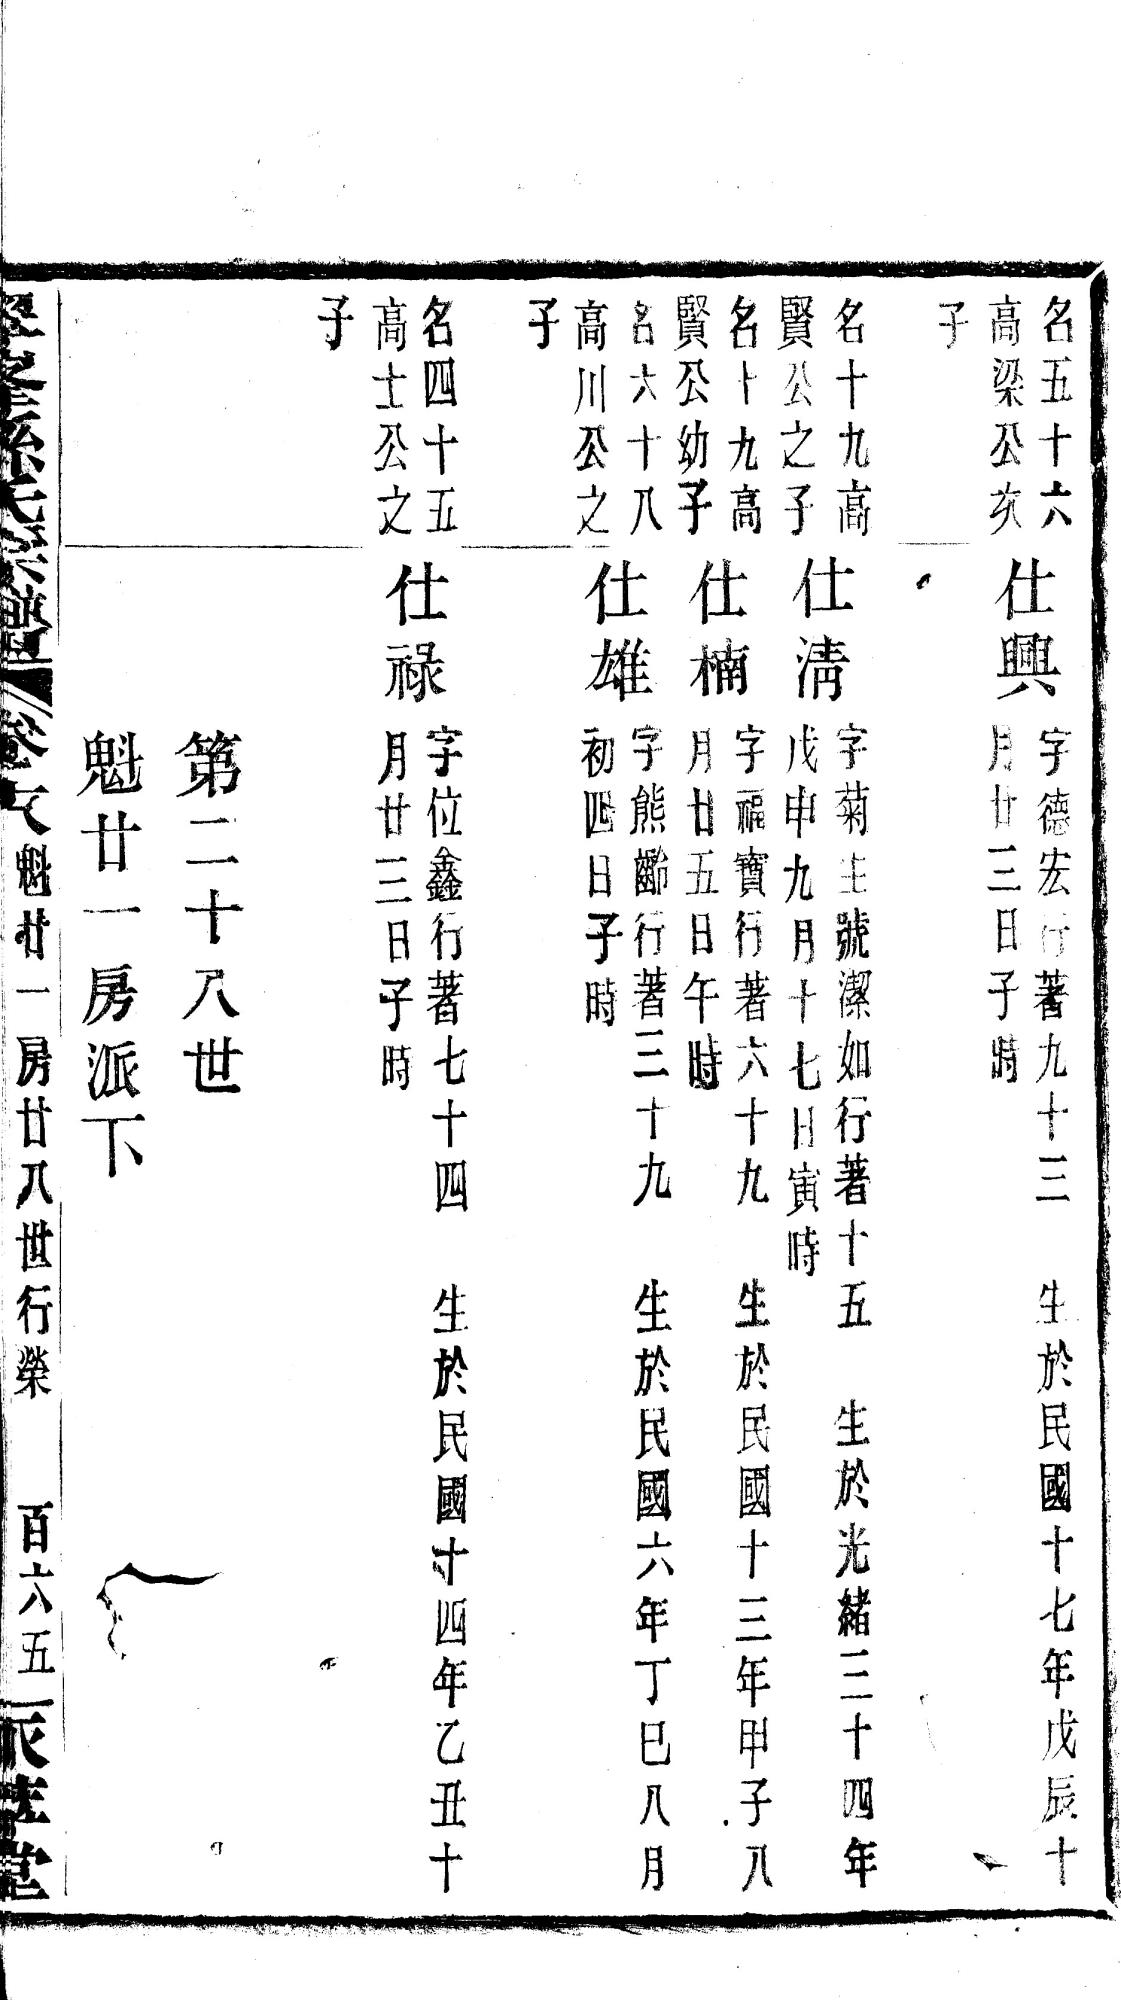 名五十六
高梁公次
子
仕興
字德宏行著九十三 生於民國十七年戊辰十
月廿三日子時
名十九高
賢公之子
仕淸
字菊生號潔如行著十五 生於光緒三十四年
戊申九月十七日寅時
名十九高
賢公幼子
仕楠
字福寶行著六十九 生於民國十三年甲子八
月廿五日午時
名六十八
高川公之
子
仕雄
字熊齡行著三十九 生於民國六年丁巳八月
初四日子時
名四十五
高士公之
子
仕祿
字位鑫行著七十四 生於民國十四年乙丑十
月廿三日子時
第二十八世
魁廿一房派下
孫氏宗譜 魁廿一房廿八世行榮 百六五